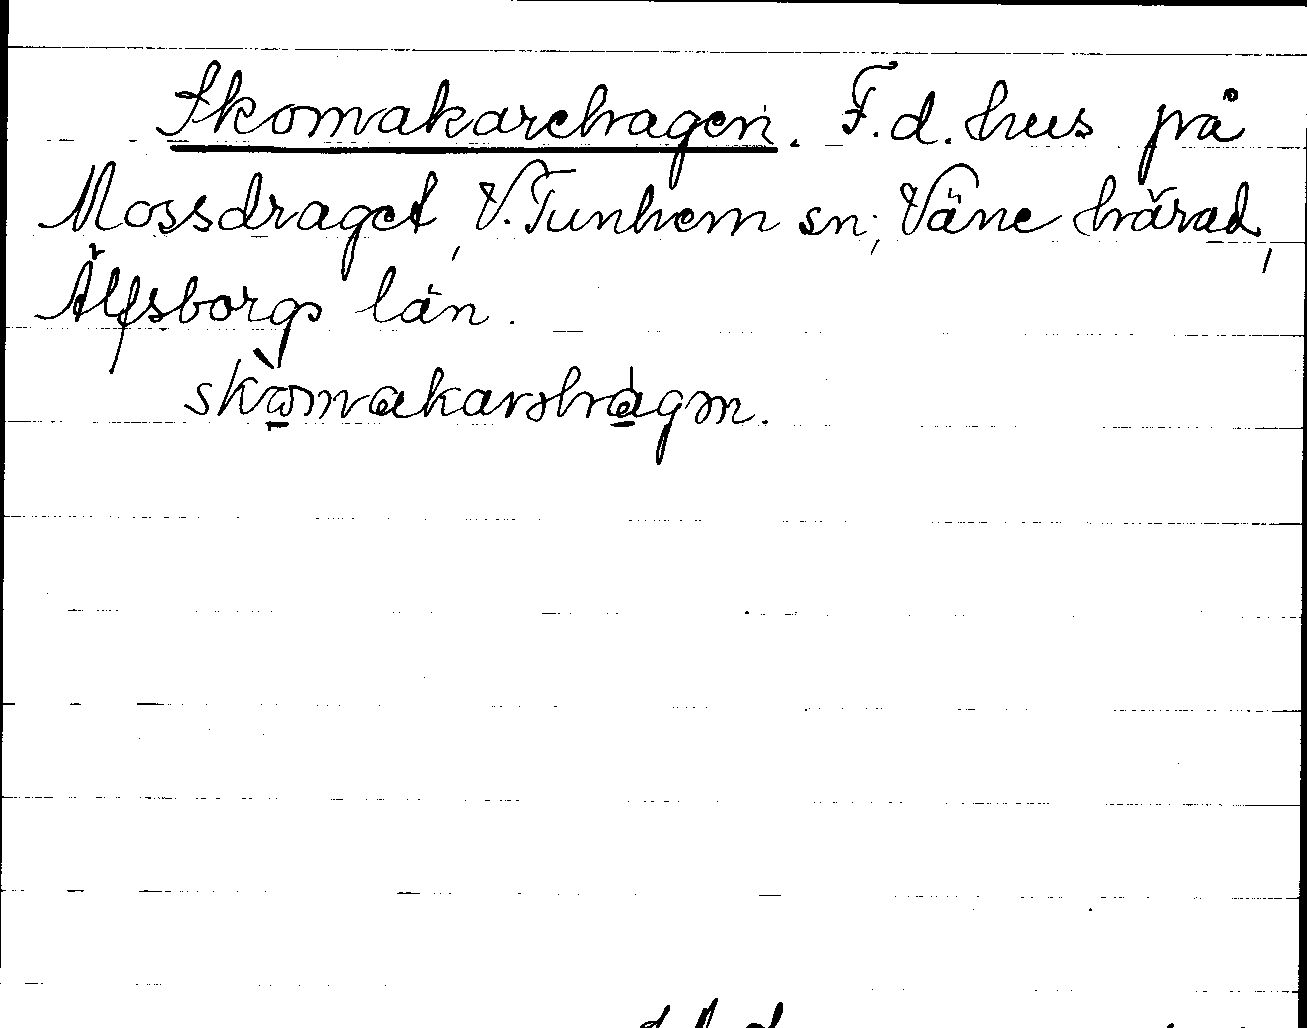 Skomakarehagen. F.d. hus på
Mossdraget, V. Tunhem sn, Väne härad,
Älfsborgs län.